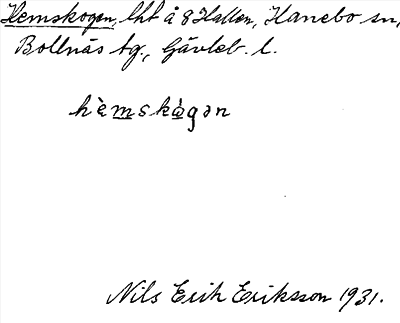 Hemskogen, lht å 8 Hallen, Hanebo sn,
Bollnäs tg., Gävleb. l.
hèmskògən
Nils Erik Eriksson 1931.